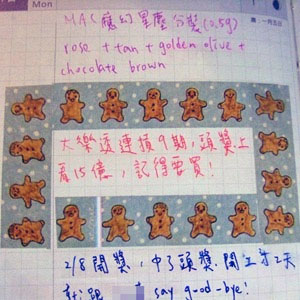 Mon
MAC魔幻星塵分裝(2.5g)
rose + tan + golden olive +
chocolate brown
大樂透連摃9期,頭獎上
看15億,記得要買!
2/8開獎,中了頭獎,開工第2天
就跟 say good-bye!